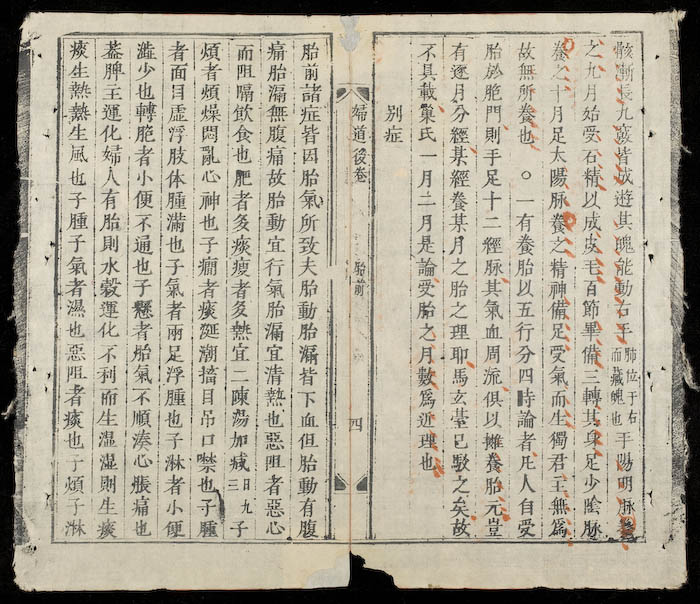 骸漸長九竅皆成遊其魄能動右手肺位于右而藏魄也手陽明脉養
之九月始受石精以成皮毛百節畢備三轉其身足少陰脉
養之十月足太陽脉養之精神備足受氣而生獨君主無爲
故無所養也 ○一有養胎以五行分四時論者凡人自受
胎於胞門則手足十二經脉其氣血周流俱以擁養胎元豈
有逐月分經某經養某月之胎之理耶馬玄臺已駁之矣故
不具載巢氏一月二月是論受胎之月數爲近理也
別症
婦道後卷 胎前 四
胎前諸症皆因胎氣所致夫胎動胎漏皆下血但胎動有腹
痛胎漏無腹痛故胎動宜行氣胎漏宜清熱也惡阻者惡心
而阻隔飲食也肥者多痰瘦者多熱宜二陳湯加減三日九子
煩者煩燥悶亂心神也子癇者痰涎潮搐目吊口噤也子腫
者面目虛浮肢体腫滿也子氣者兩足浮腫也子淋者小便
澁少也轉胞者小便不通也子懸者胎氣不順湊心脹痛也
葢脾主運化婦人有胎則水穀運化不利而生濕濕則生痰
痰生熱熱生風也子腫子氣者濕也惡阻者痰也子煩子淋